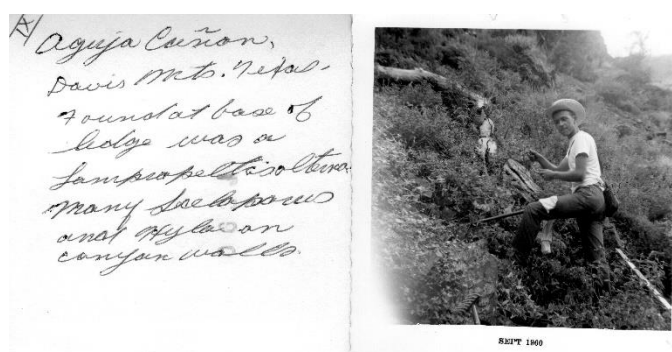 A
Aguja Cañon,
Davis Mts. Texas-
Found at base of
ledge was a
Lampropeltis alterna
Many Sceloporus
and Hyla on
canyon walls.
SEPT 1960